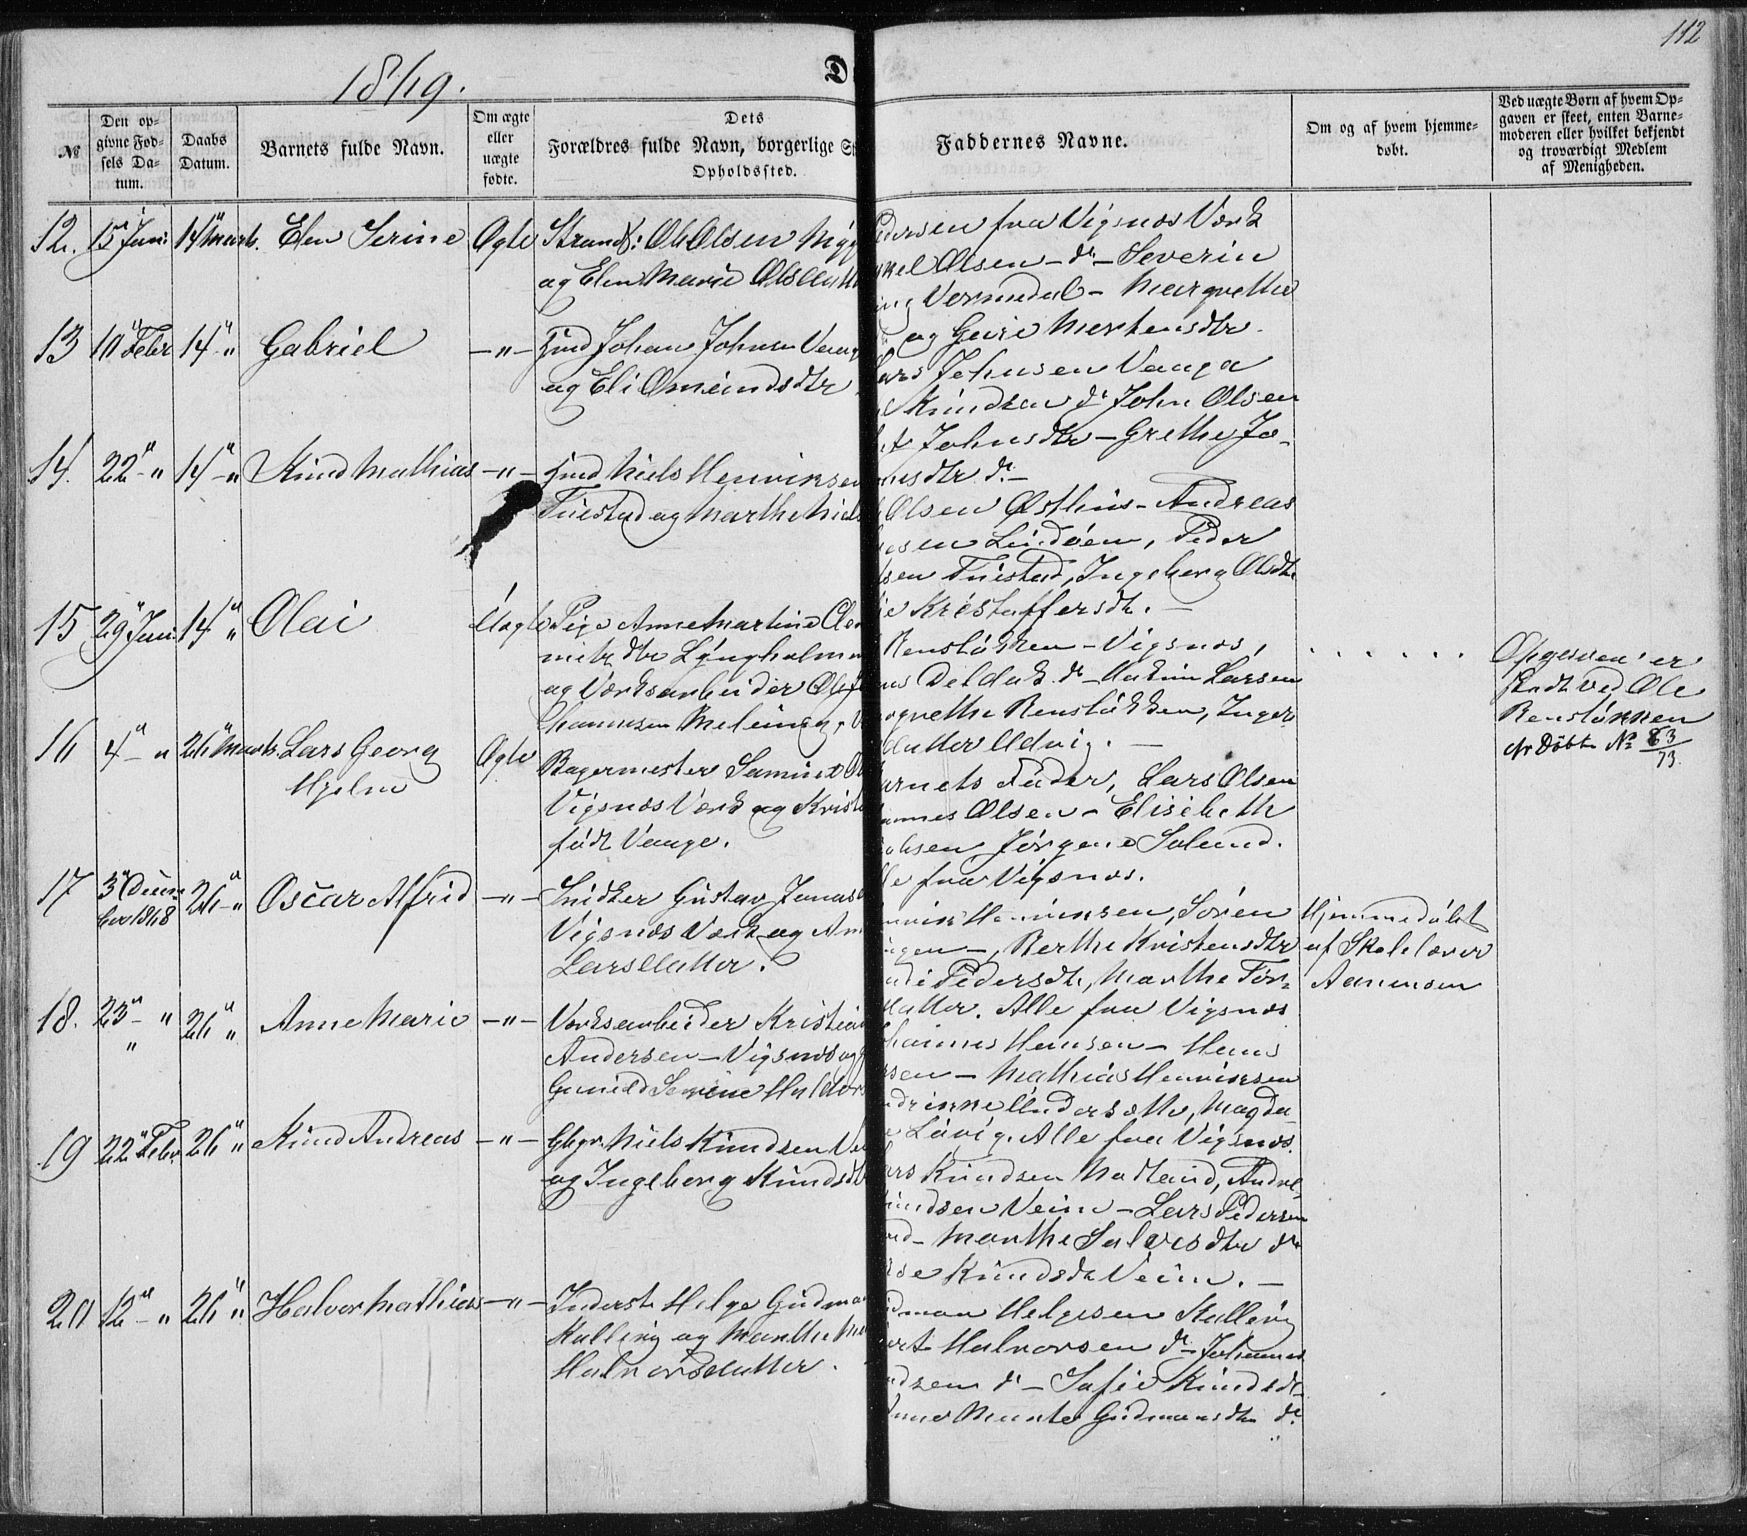 112
1869.
D
№
Den op-
givne Fød-
sels Da-
tum.
Daabs
Datum.
Barnets fulde Navn.
Om ægte
eller
uægte
fødte.
Dets
Forældres fulde Navn, borgerlige St
Opholdssted.
Faddernes Navne.
Om og af hvem hjemme-
døbt.
Ved uægte Børn af hvem Op-
gaven er skeet, enten Barne-
moderen eller hvilket bekjendt
og troværdigt Medlem
af Menigheden.
12. 15 Jan. 14 Marts. Elen Serine Ægte Strands: Ole Olsen
og Elen Marie Olsdatter
dersen fra Vigsnæs Værk
kel Olsen - do - Severin
Vormedal - Margrethe
og Guri Mortensdtr.
13 10 Febr 14 " Gabriel - " - Gmd Johan Johnsen Vaaga
og Eli Omundsdtr
Lars Johnsen Vaaga
Knudsen do John Olsen
Johnsdtr - Grethe Jo-
hnsdtr do. -
14. 22 - " 14 - " Knud Mathias - " - Gmd Niels Henriksen
Tuestad og Marthe Niels
Olsen Østhus - Andreas
sen Lindøen, Peder
sen Tuestad, Ingeborg Olsdtr
Kristoffersdtr. -
15 29 Jan. 14 " Olai Uægte Pige Anne Martine Cle
mets dtr Lyngholmen
og Værksarbeider Ole
hannesen Meling,
Rensløkken - Vigsnæs,
Deldak do - Larsen
agrethe Rensløkken, Inger
datter Udvig. -
. . . . . .
Opgaven er
skedt ved Ole
Rensløkken
cfr Døbte № 63/73.
16 4 - " 26 Marts. Lars Georg
Hjelm
Ægte Bagermester Samuel
Vigsnæs Værk og Krist
født Vaage.
arnets Fader, Lars Olsen
annes Olsen - Elisabeth
Jørgene Solund.
lle fra Vigsnæs.
17 3 Decem
ber 1868 26 - " Oscar Alfred - " - Snidker Gustav Jonas
Vigsnæs Værk og An
Larsdatter.
Henriksen, Søren
- , Berthe Kristensdtr
Pedersdtr, Marthe Tor-
datter. Alle fra Vigsnæs
Hjemmedøbt
af Skolelærer
Aanensen
18. 23 - " 26 " Anne Marie - " - Værksarbeider Kristian
"
Andersen - Vigsnæs og
Gunild Serine Haldors
hannes Hansen - Hans
sen - Mathias Henriksen
Magda
Løvig. Alle fra Vigsnæs.
19 22 Febr. 26 " Knud Andreas - " - Gbgr. Niels Knudsen Ve
og Ingeborg Knudsdt
ars Knudsen Hatland, Andre
nudsen Veim - Lars Pedersen
- Marthe Salvesdtr do
Knudsdtr Veim. -
20 12 - " 26 " Halvor Mathias - " - Inderst Helge Gudman
Stalleviq og Marthe
Halvorsdatter.
dman Helgesen Stallevig
Halvorsen do - Johannes
dsen do - Sofie Knudsdtr
Gudmansdtr do.